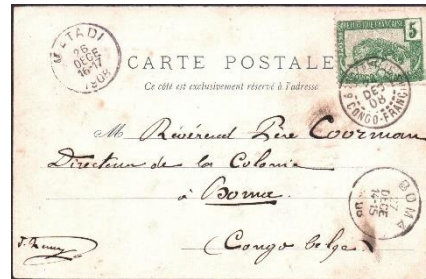 MATADI
26
DECE
16-17
1908
5
CARTE POSTALE
Ce côté est exclusivement réservé à l'adresse
DÉC
08
CONGO-FRANÇAIS
M Révérend Père Coorman
Directeur de la Colonie
à Boma
(Congo belge)
BOMA
27
DECE
14-15